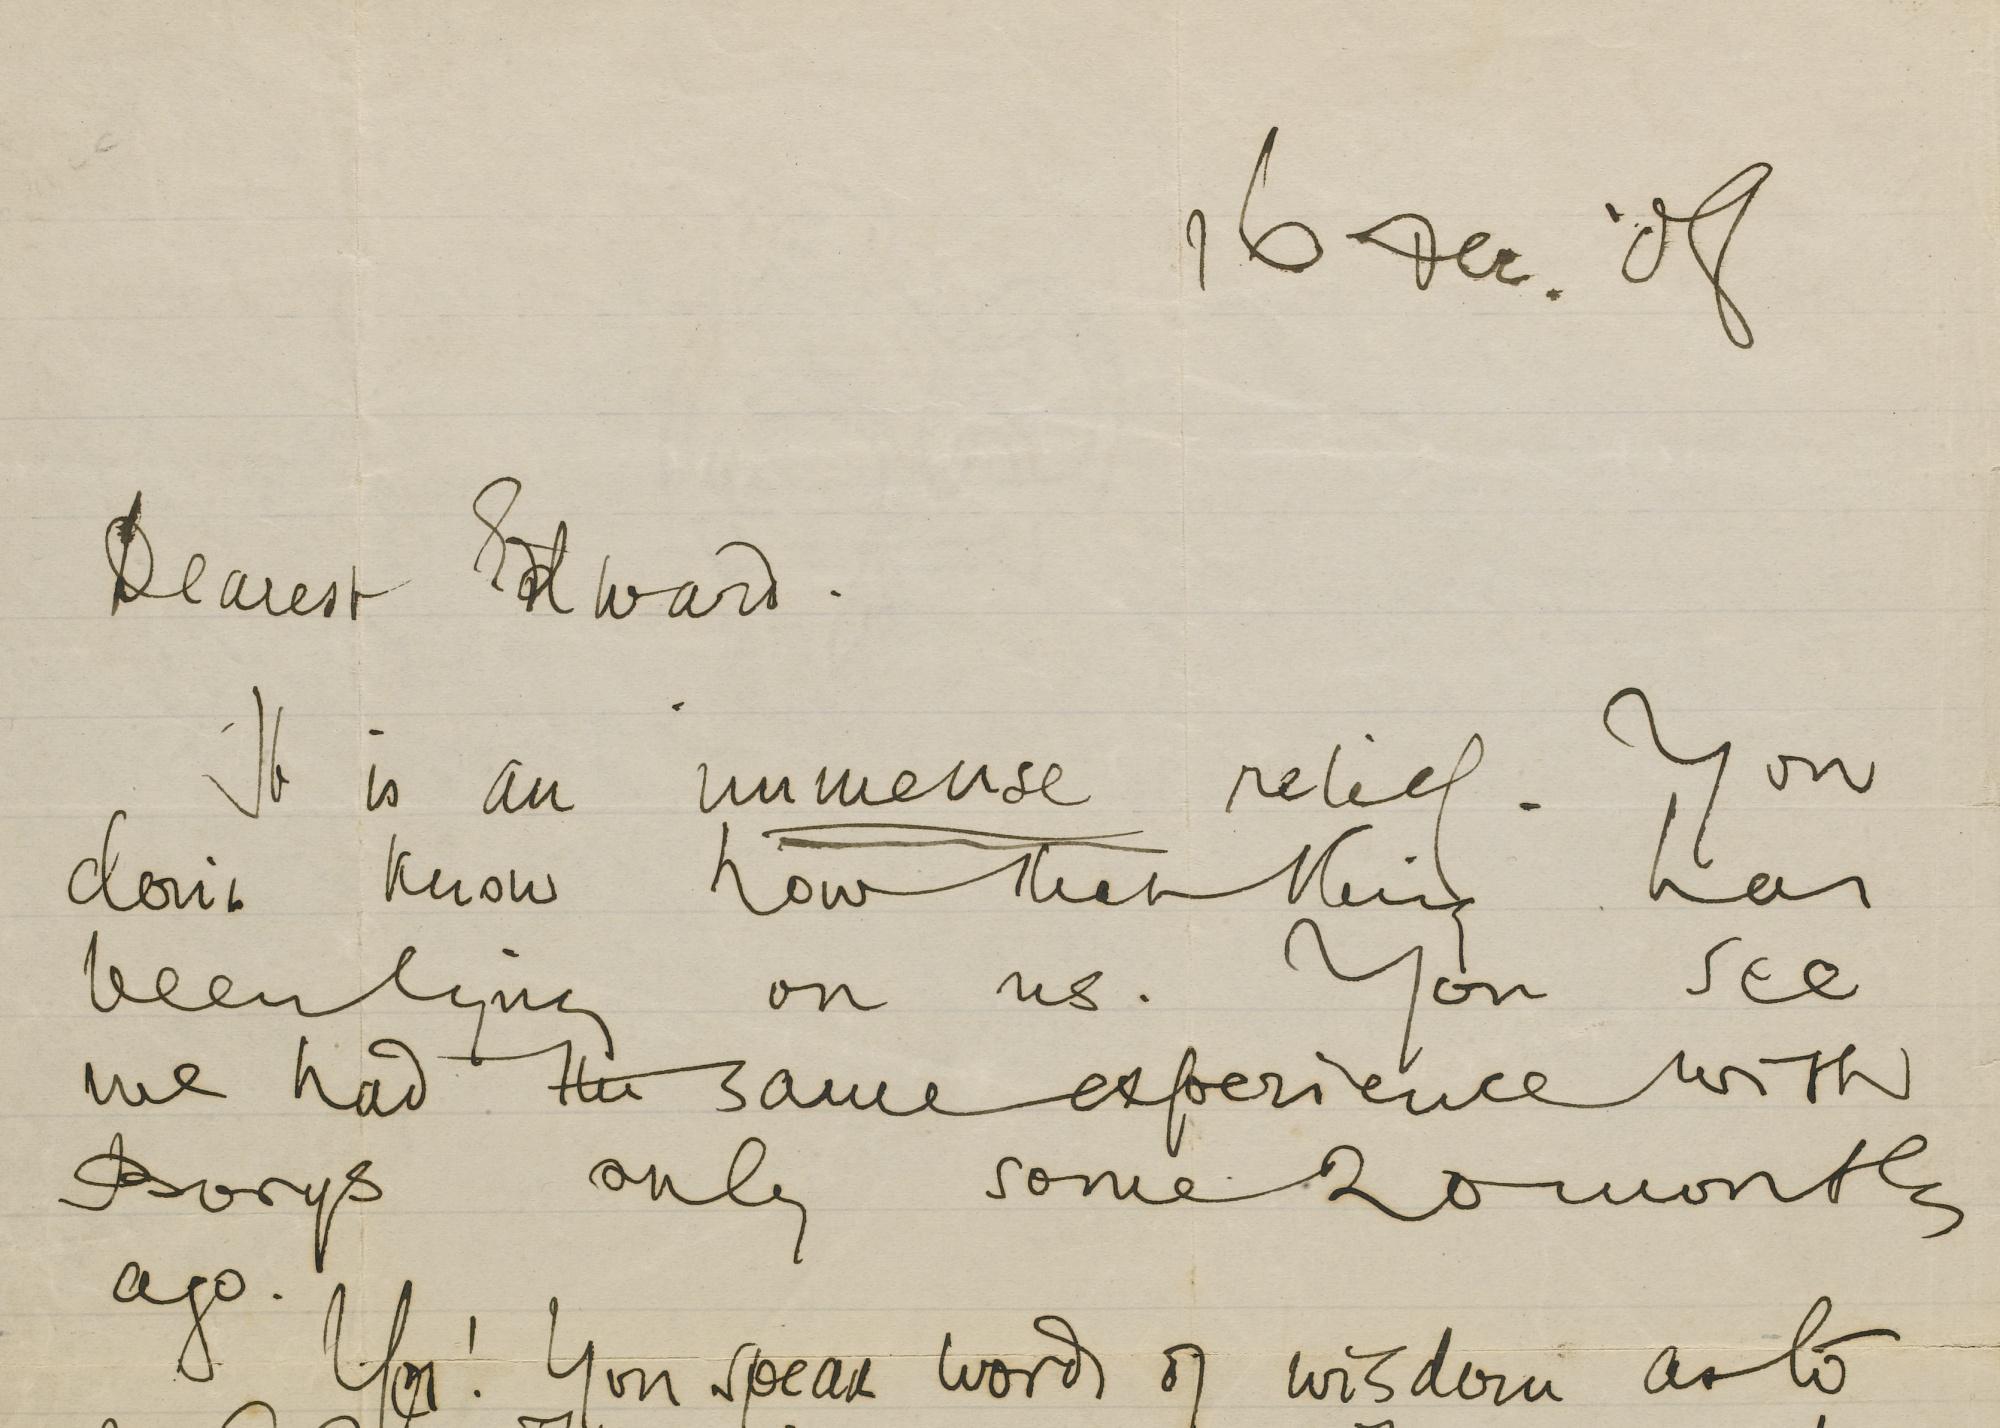 16 Dec. '08
Dearest Edward.
It is an immense relief. You
don't know how that thing has
been lying on us. You see
we had the same experience with
Borys only some 20 months
ago.
Yes! You speak words of wisdom as to